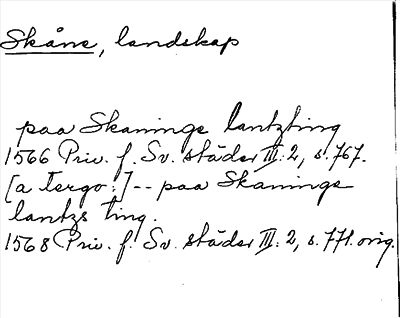 Skåne, landskap
paa Skanings lantzting
1566 Priv. f. Sv. städer III: 2, s. 767.
[a tergo:] -- paa Skanings
lantzs ting.
1568 Priv. f. Sv. städer III: 2, s. 771. orig.